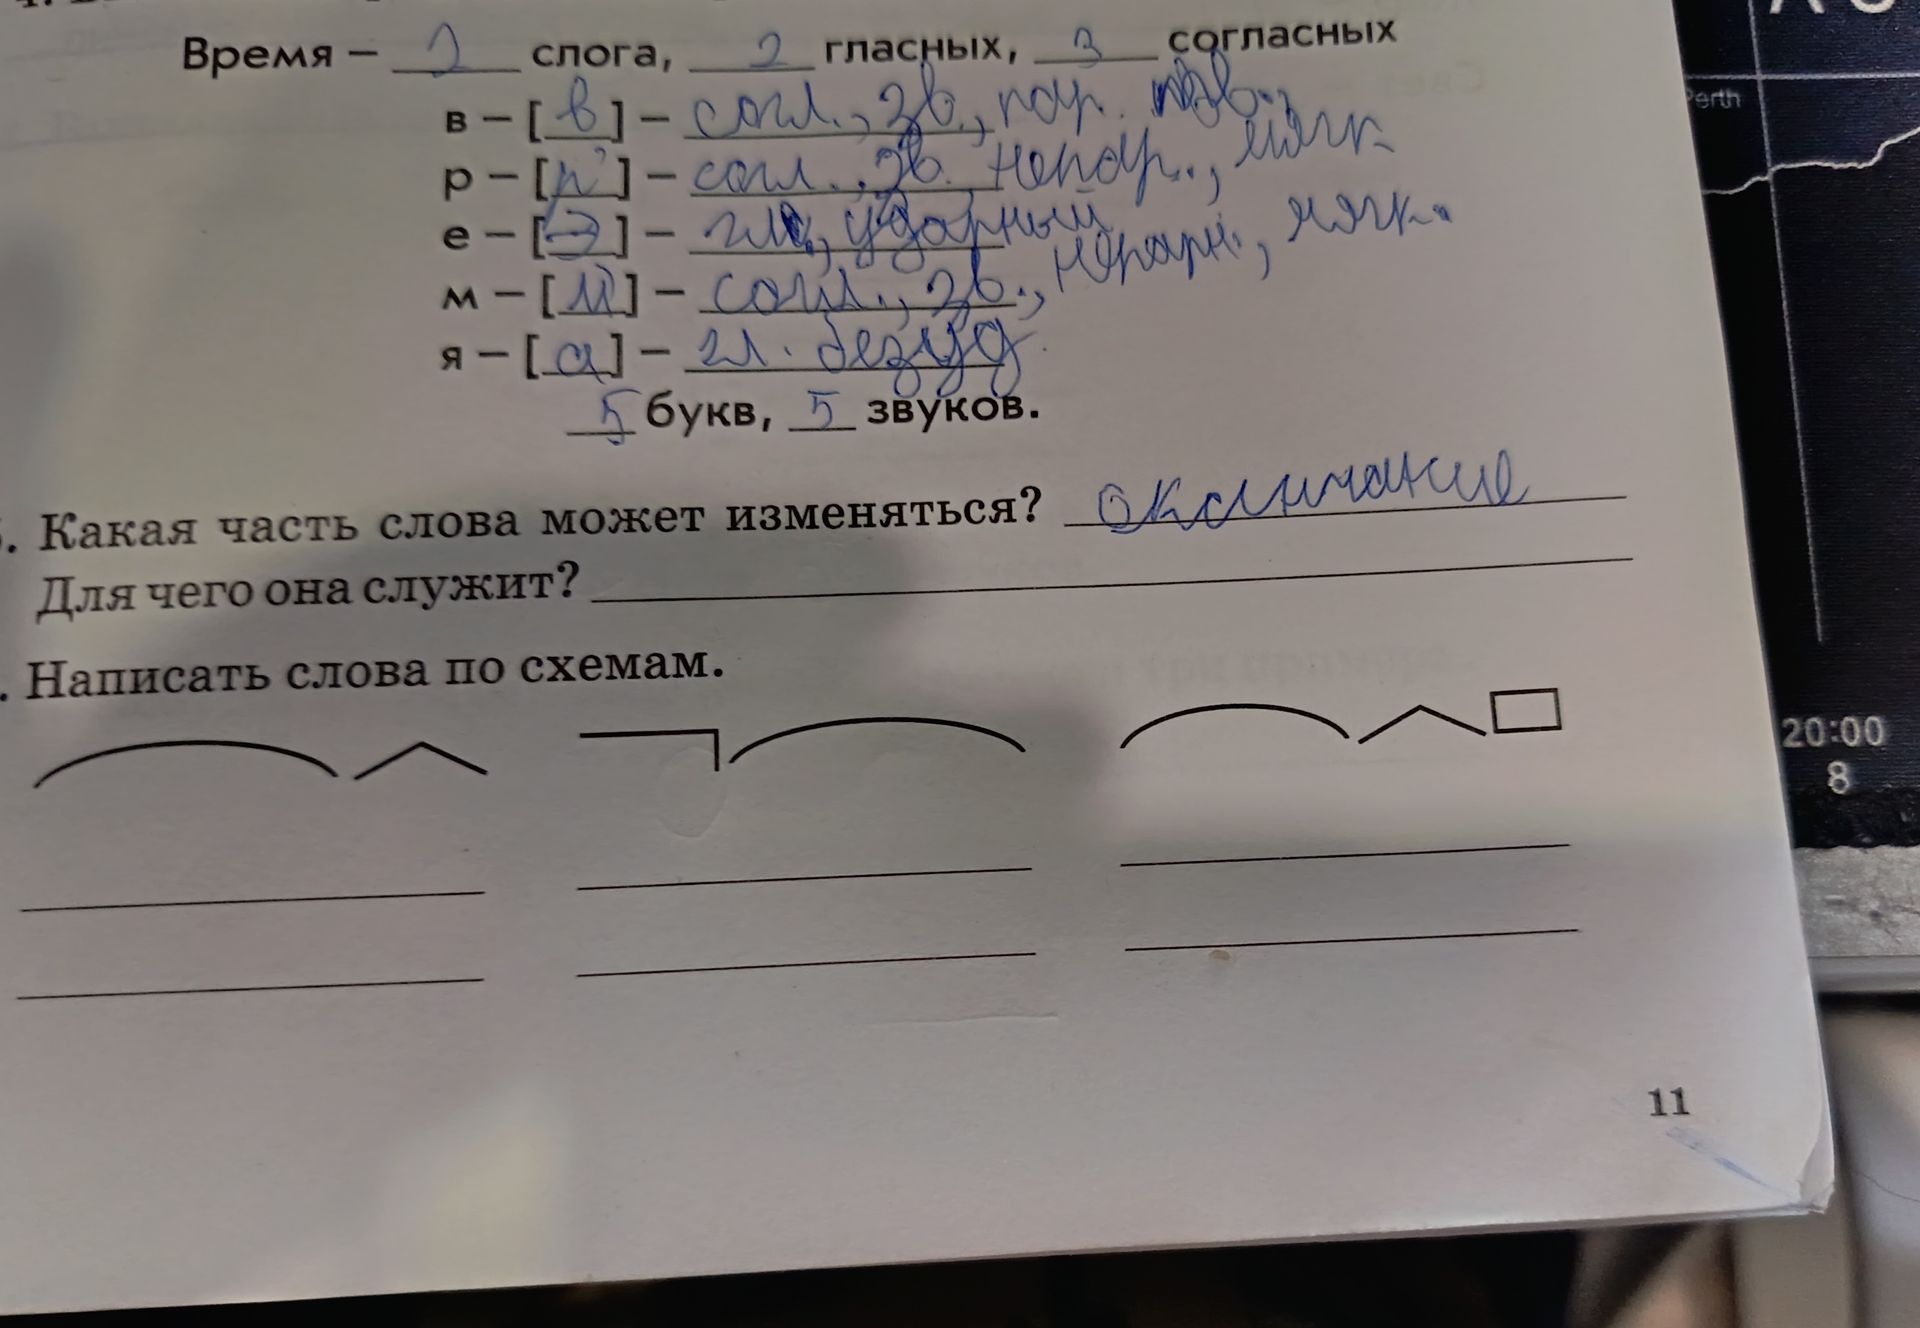 Время – 2 слога, 2 гласных, 3 согласных
в – [в] – согл., зв., пар.
р – [р'] – согл., зв. непар., мягк
е – [э] – гл., ударный
м – [м'] – согл., зв., непарн., мягк.
я – [а] – гл. безуд
5 букв, 5 звуков.
. Какая часть слова может изменяться? окончание
Для чего она служит?
. Написать слова по схемам.
11
Perth
20:00
8